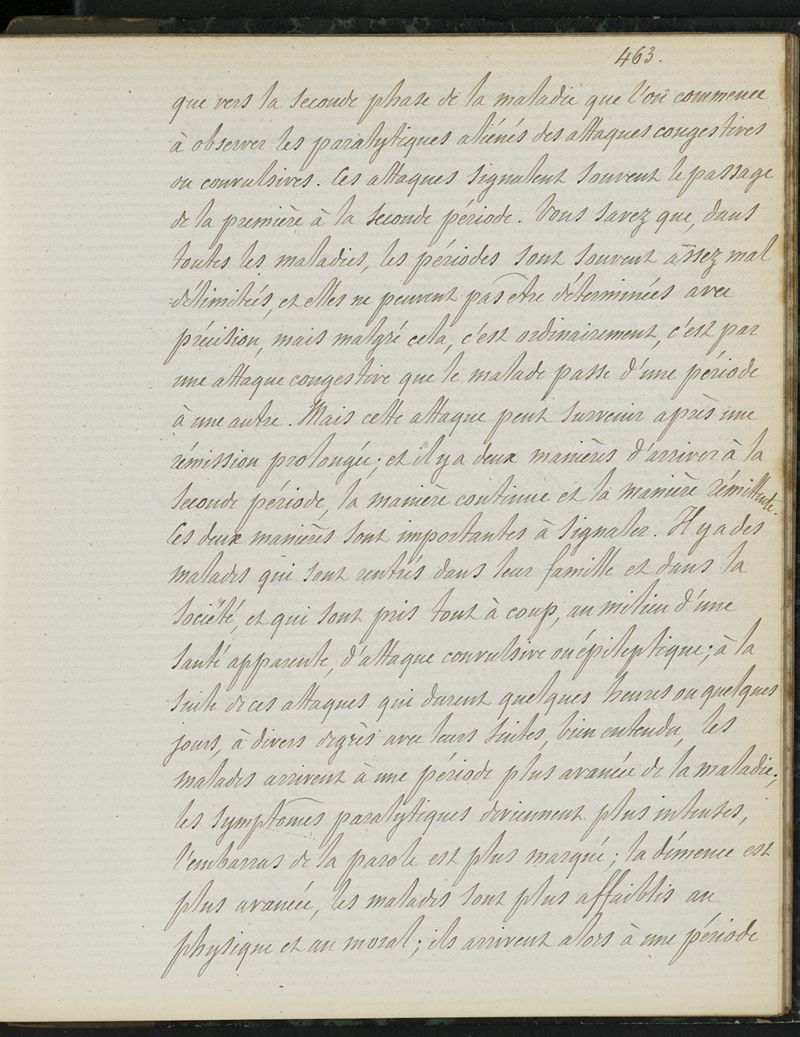 463.
que vers la seconde phase de la maladie que l'on commence
à observer les paralytiques aliénés des attaques congestives
ou convulsives. Ces attaques signalent souvent le passage
de la première à la seconde période. Vous savez que, dans
toutes les maladies, les périodes sont souvent assez mal
délimitées, et elles ne peuvent pas être déterminées avec
précision, mais malgré cela, c'est ordinairement, c'est par
une attaque congestive que le malade passe d'une période
à une autre. Mais cette attaque peut survenir après une
rémission prolongée; et il y a deux manières d'arriver à la
seconde période, la manière continue et la manière rémittente.
Ces deux manières sont importantes à signaler. Il y a des
malades qui sont rentrés dans leur famille et dans la
société, et qui sont pris tout à coup, au milieu d'une
santé apparente, d'attaque convulsive ou épileptique; à la
suite de ces attaques qui durent quelques heures ou quelques
jours, à divers degrés avec leurs suites, bien entendu, les
malades arrivent à une période plus avancée de la maladie;
les symptômes paralytiques deviennent plus intenses,
l'embarras de la parole est plus marqué; la démence est
plus avancée, les malades sont plus affaiblis au
physique et au moral; ils arrivent alors à une période